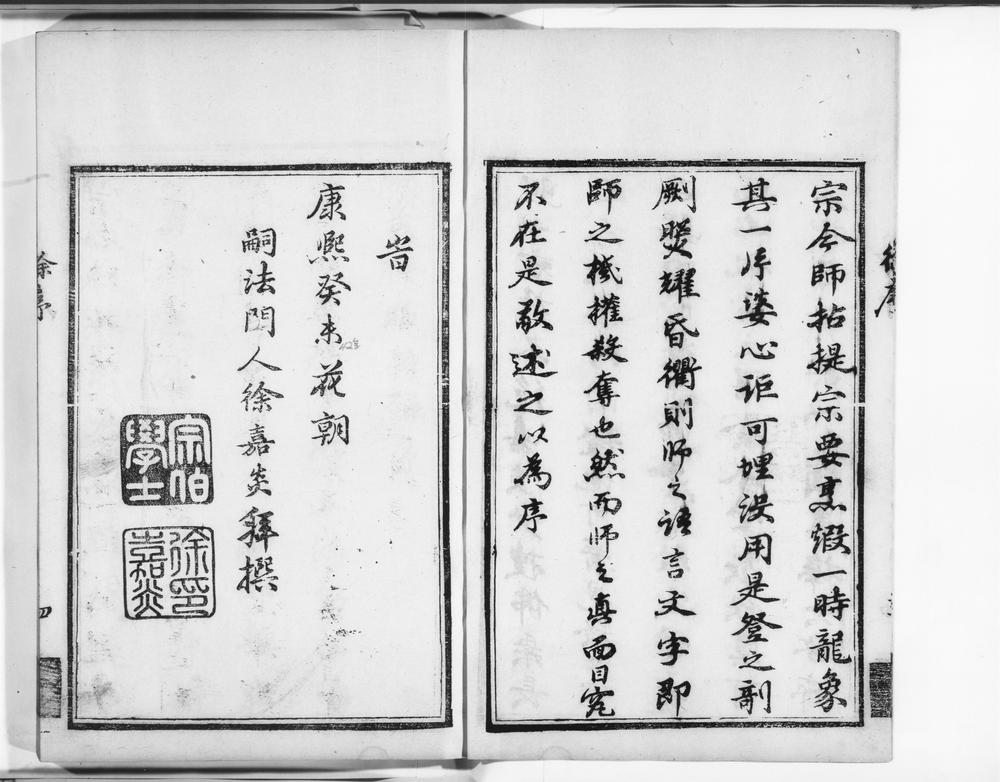 徐序
宗今師拈提宗要烹煅一時龍象
其一片婆心詎可埋沒用是登之剞
劂耀昏衢則師之語言文字即
師之機權殺奪也然而師之真面目究
不在是敢述之以為序
旹
康熙癸未花朝
嗣法門人徐嘉炎拜撰
宗伯
學士
徐印
嘉炎
徐序
四